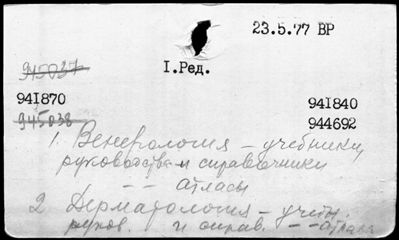 23.5.77 ВР
945037
I.Ред.
94I870
94I840
945038
944692
1. Венерология – учебники,
руководства и справочники
– – атласы
2 Дерматология – учебн.
руков. и справ. – – атласы